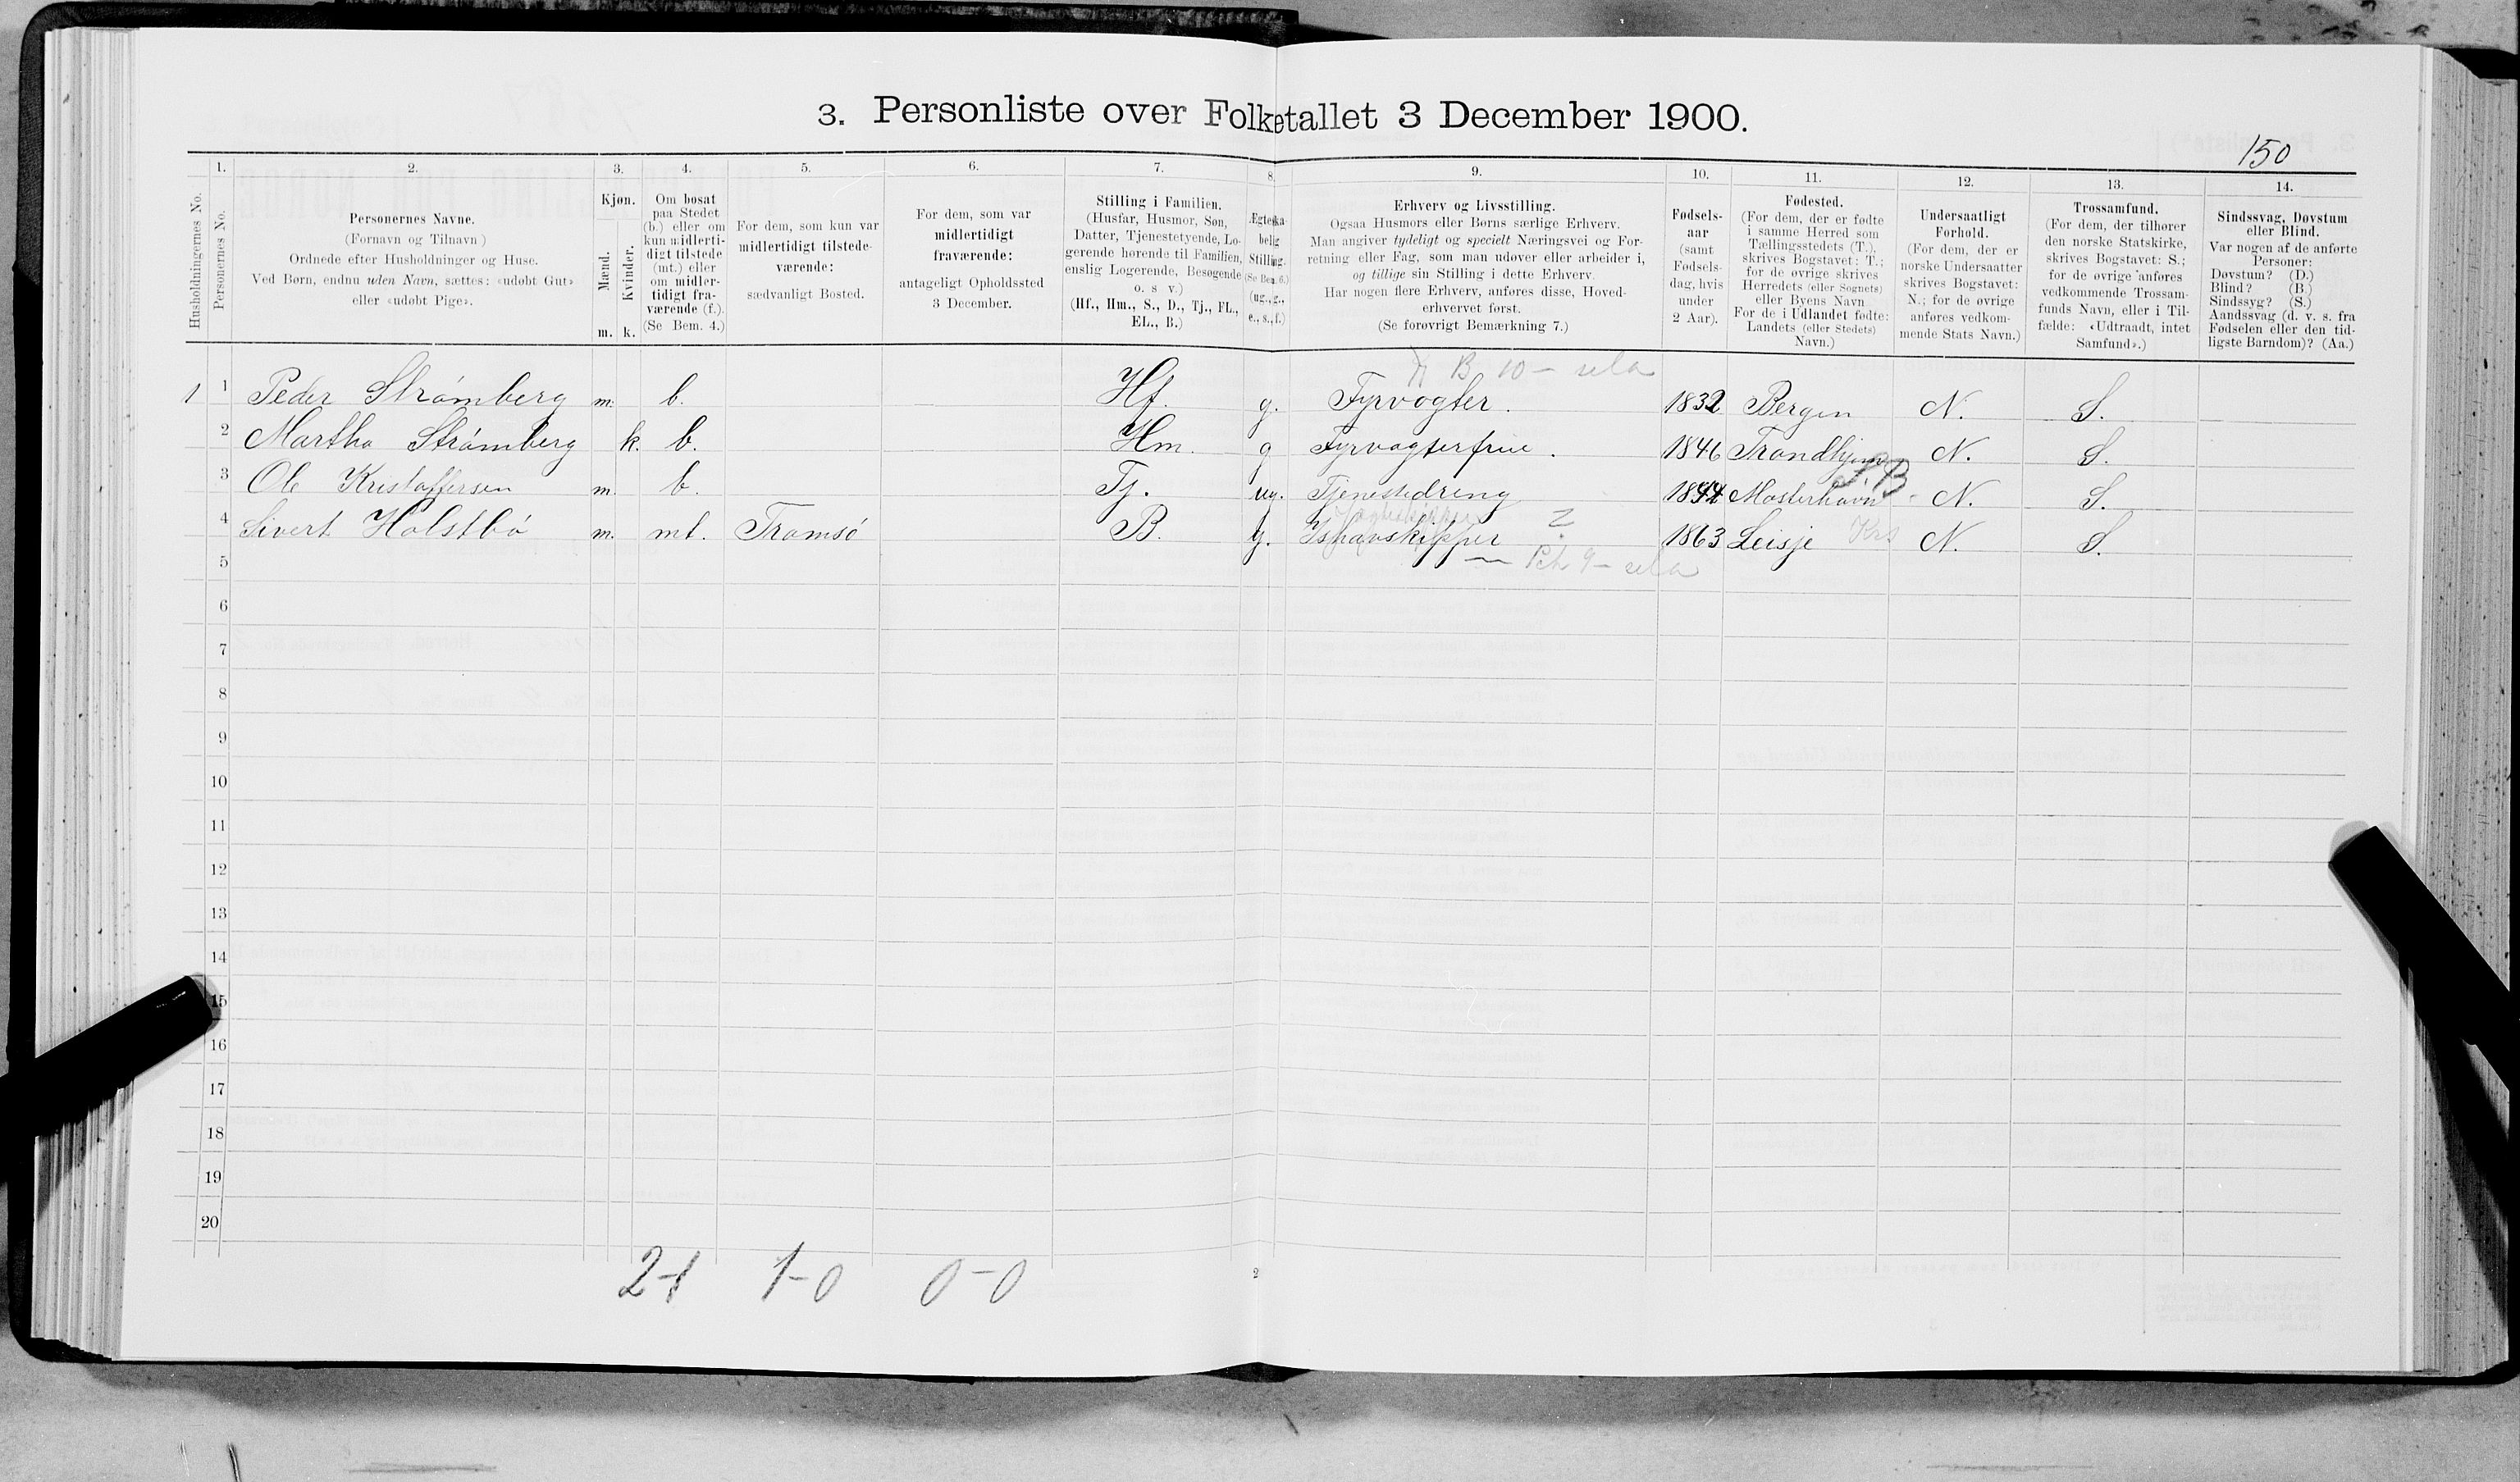 3. Personliste over Folketallet 3 December 1900.
150
1. 2. 3. 4. 5. 6. 7. 8. 9. 10. 11. 12. 13. 14.
Husholdningernes No.
Personernes No.
Personernes Navne.
(Fornavn og Tilnavn)
Ordnede efter Husholdninger og Huse.
Ved Børn, endnu uden Navn, sættes: «udøbt Gut»
eller «udøbt Pige».
Kjøn.
Mænd.
Kvinder.
m. k.
Om bosat
paa Stedet
(b.) eller om
kun midlerti-
digt tilstede
(mt.) eller
om midler-
tidigt fra-
værende (f.).
(Se Bem. 4.)
For dem, som kun var
midlertidigt tilstede-
værende:
sædvanligt Bosted.
For dem, som var
midlertidigt
fraværende:
antageligt Opholdssted
3 December.
Stilling i Familien.
(Husfar, Husmor, Søn,
Datter, Tjenestetyende, Lo-
gerende hørende til Familien,
enslig Logerende, Besøgende
o. s v.)
(Hf., Hm., S., D., Tj., FL.,
EL., B.)
Ægteska-
belig
Stilling.
(Se Bem. 6.)
(ug., g.,
e., s., f.)
Erhverv og Livsstilling.
Ogsaa Husmors eller Børns særlige Erhverv.
Man angiver tydeligt og specielt Næringsvei og For-
retning eller Fag, som man udøver eller arbeider i,
og tillige sin Stilling i dette Erhverv.
Har nogen flere Erhverv, anføres disse, Hoved-
erhvervet først.
(Se forøvrigt Bemærkning 7.)
Fødsels-
aar
(samt
Fødsels-
dag, hvis
under
2 Aar).
Fødested.
(For dem, der er fødte
i samme Herred som
Tællingsstedets (T.),
skrives Bogstavet: T.;
for de øvrige skrives
Herredets (eller Sognets)
eller Byens Navn
For de i Udlandet fødte:
Landets (eller Stedets)
Navn.)
Undersaatligt
Forhold.
(For dem, der er
norske Undersaatter
skrives Bogstavet:
N.; for de øvrige
anføres vedkom-
mende Stats Navn.)
Trossamfund.
(For dem, der tilhører
den norske Statskirke,
skrives Bogstavet: S.;
for de øvrige anføres
vedkommende Trossam-
funds Navn, eller i Til-
fælde: «Udtraadt, intet
Samfund».)
Sindssvag, Døvstum
eller Blind.
Var nogen af de anførte
Personer:
Døvstum? (D.)
Blind? (B.)
Sindssyg? (S.)
Aandssvag (d. v. s. fra
Fødselen eller den tid-
ligste Barndom)? (Aa.)
B 10 –
1 1 Peder Strømberg m. b. Hf. g. Fyrvogter. 1832 Bergen N. S.
2 Martha Strømberg k. b. Hm. g Fyrvogterfrue. 1846 Trondhjem N. S.
S.B
3 Ole Kristoffersen m. b. Tj. ug. Tjenestedreng Mosterhavn N. S.
4 Sivert Holstbø m. mt. Tromsø B. g. Ishavsskipper 1863 Leisje N. S.
5
6
7
8
9
10
11
12
13
14
15
16
17
18
19
20
2-1 1-0 0-0
2